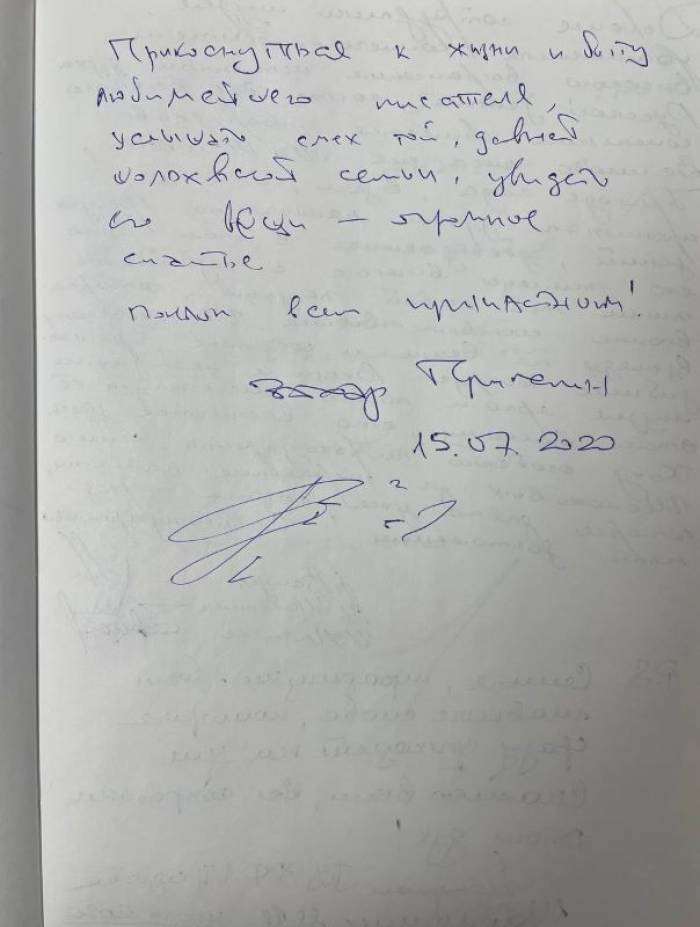 Прикоснуться к жизни и быту
любимейшего писателя,
услышать смех той, давней
шолоховской семьи, увидеть
его вещи — огромное
счастье
Поклон всем причастным!
Захар Прилепин
15.07.2020